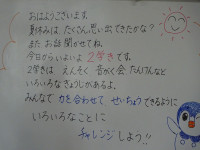 おはようございます。
夏休みは たくさん思い出できたかな?
また お話聞かせてね。
今日からいよいよ 2学きです。
2学きは えんそく 音がく会 たんけんなど
いろいろなぎょうじがあるよ。
みんなで 力を合わせて せいちょうできるように
いろいろなことに
チャレンジしよう!!